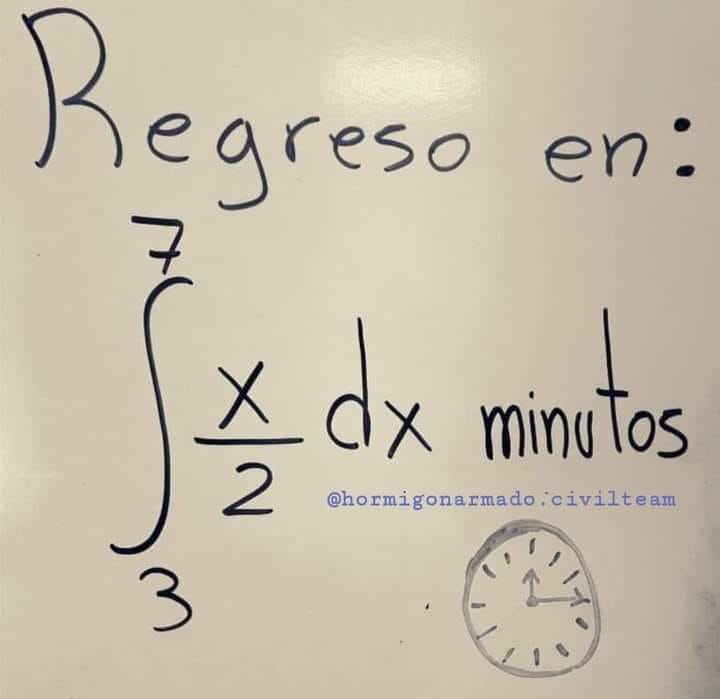 Regreso en:
7
∫ x/2 dx minutos
3
@hormigonarmado.civilteam